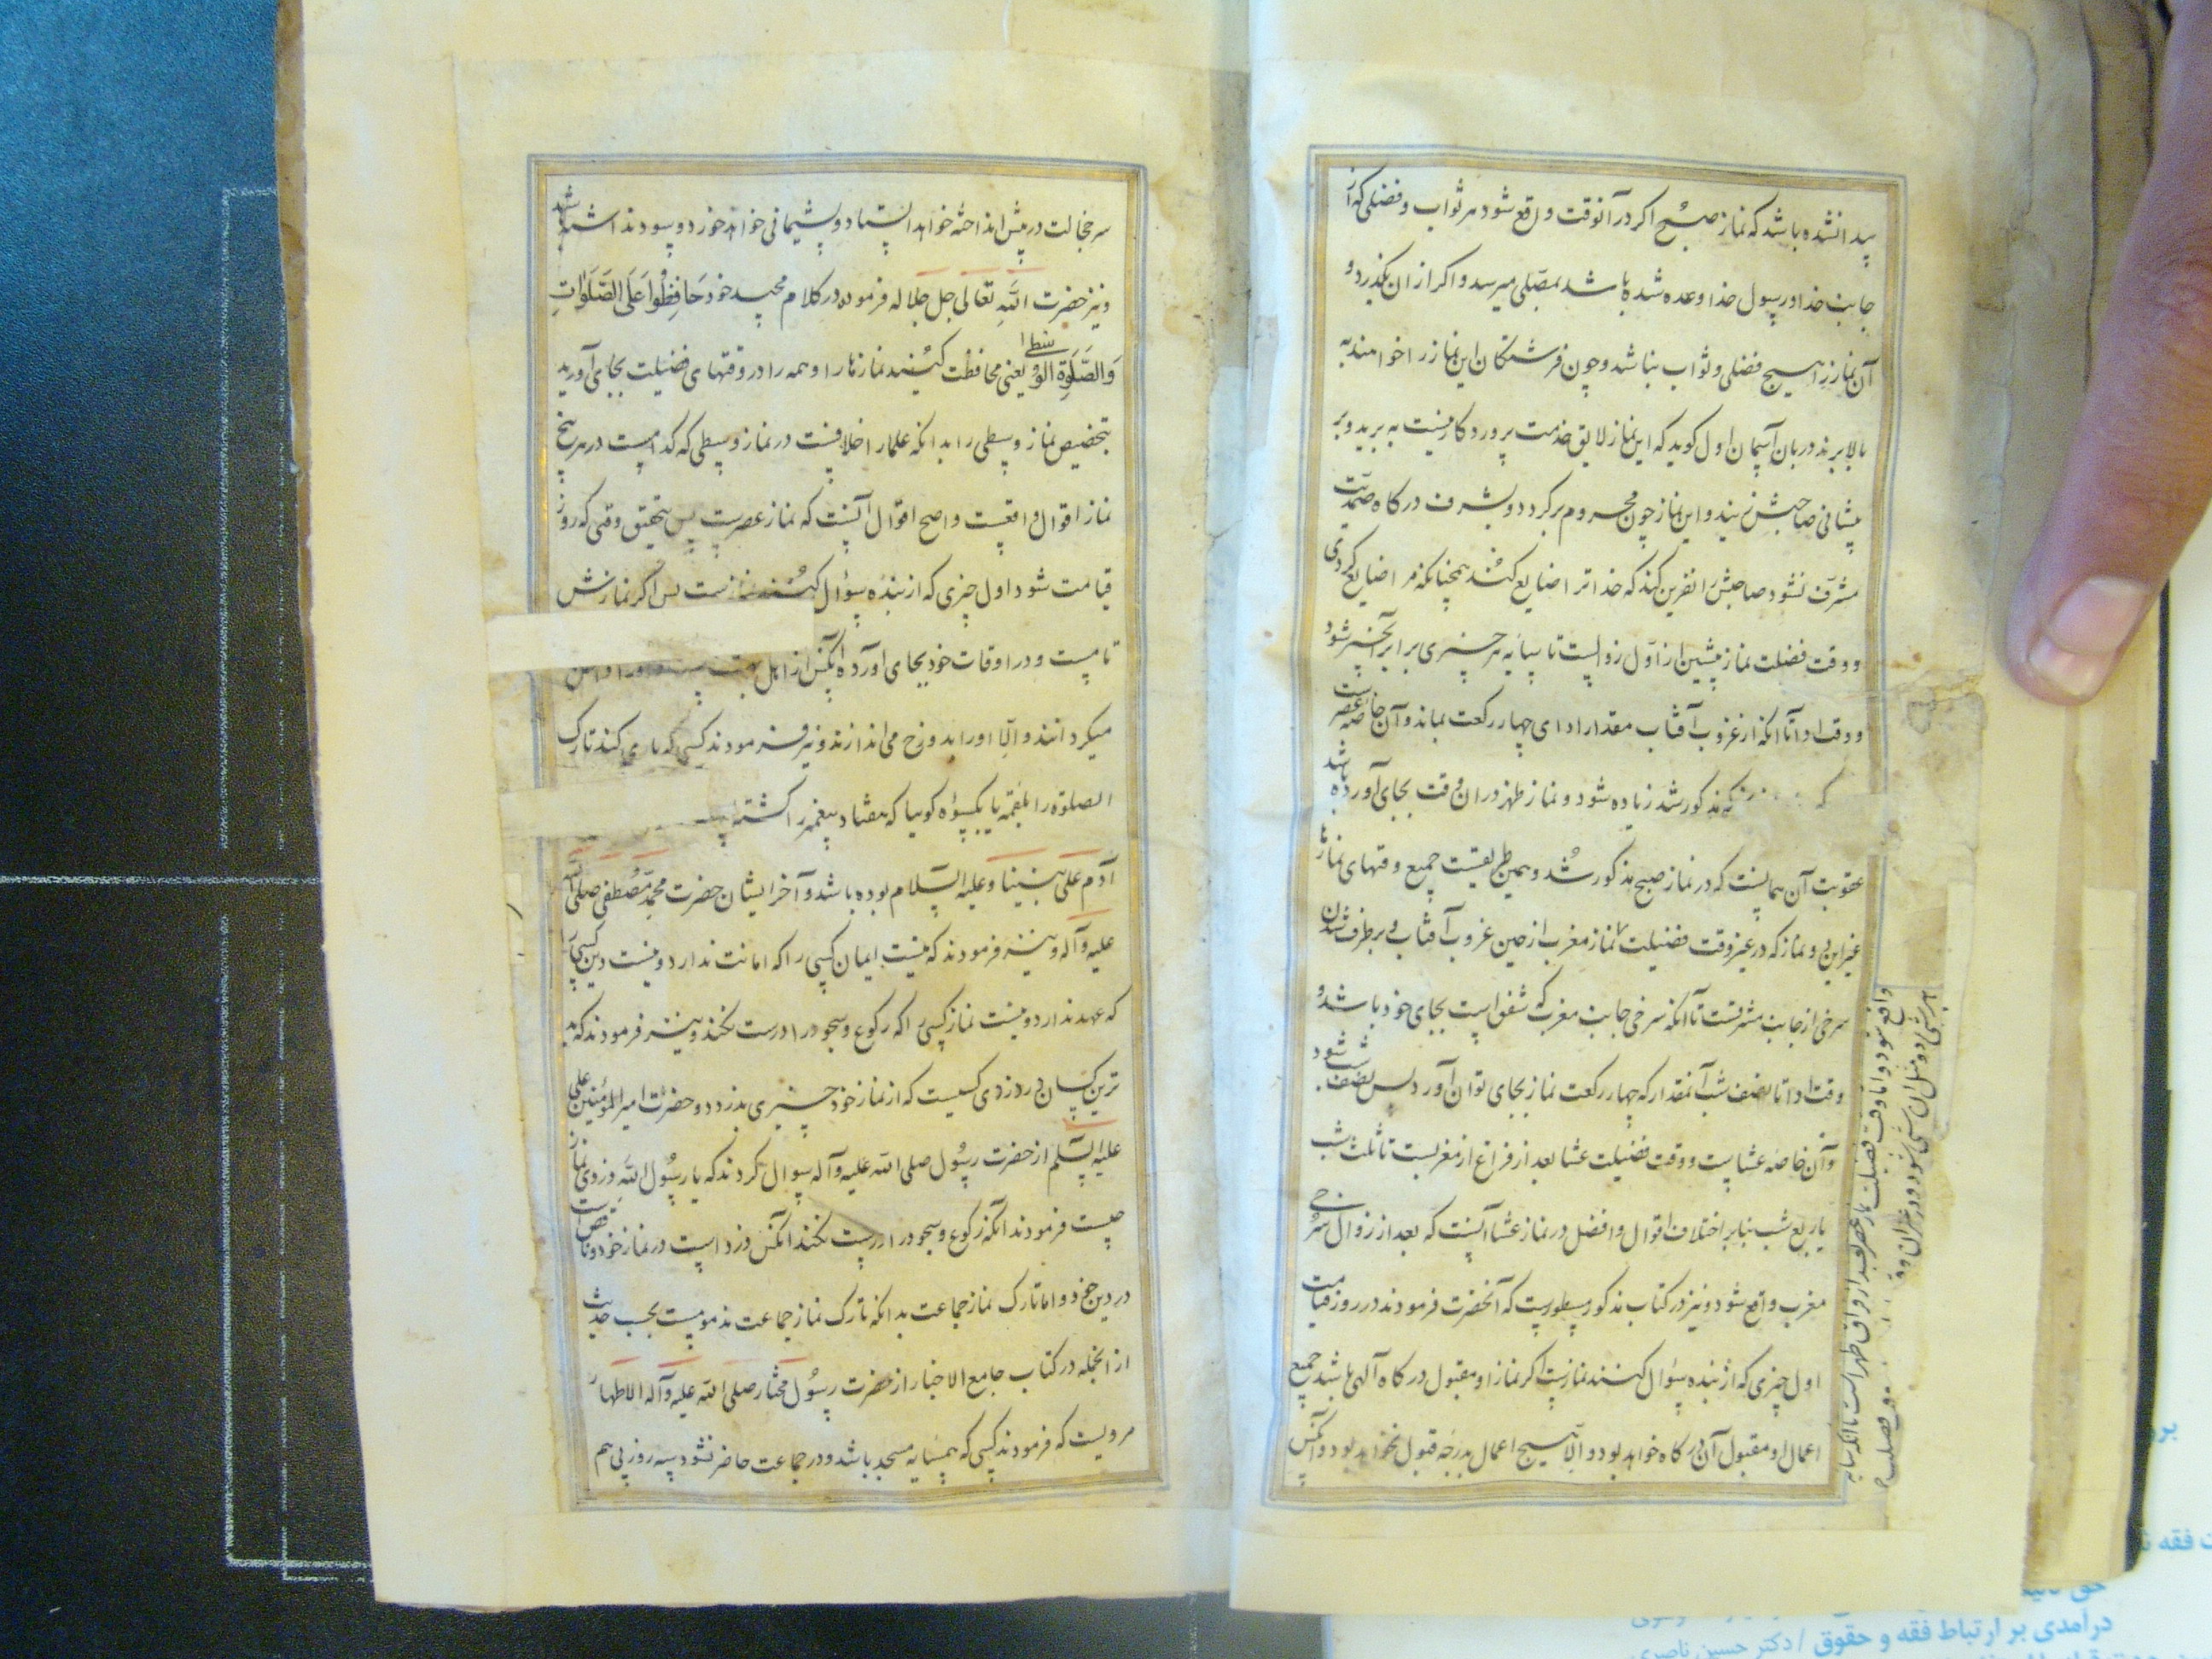 پیدا نشده باشد که نماز صبح اکر در آنوقت واقع شود هر ثواب و فضلی که از
جانب خدا و رسول خدا وعده شده باشد بمصلی میرسد و اکر از ان بکذرد و
آن نماز را هیچ فضلی و ثواب نباشد و چون فرشتکان این نماز را خواهند به
بالا برند دربان آسمان اول کوید که این نماز لایق خدمت پروردکار نیست به برید و بر
پیشانی صاحبش زنید و این نماز چون محروم برکردد و بشرف درکاه صمدیت
مشرف نشود صاحبش را نفرین کند که خدا ترا ضایع کند همچنانکه مرا ضایع کردی
و وقت فضلت نماز پیشین از اول زوالست تا سایه هر چیزی برابر آنچیز شود
و وقت ادا تا آنکه از غروب آفتاب مقدار ادای چهار رکعت بماند و آن خاصه عصر است
که مذکور شد زیاده شود و نماز ظهر در ان وقت بجای آورده باشد
عقوبت آن همانست که در نماز صبح مذکور شد و همین طریقست جمیع وقتهای نمازها
غیر این دو نماز که در غیر وقت فضیلت نماز مغرب از حین غروب آفتاب و برطرف شدن
سرخی از جانب مشرقست تا آنکه سرخی جانب مغرب که شفق است بجای خود باشد و
وقت ادا تا نصف شب آنمقدار که چهار رکعت نماز بجای توان آورد پس نصف شب شود
و آن خاصه عشاست و وقت فضیلت عشا بعد از فراغ از مغربست تا ثلث شب
یا ربع شب بنابر اختلاف اقوال و افضل در نماز عشا آنست که بعد از زوال سرخی
مغرب واقع شود و نیز در کتاب مذکور مسطورست که آنحضرت فرمودند در روز قیامت
اول چیزی که از بنده سؤال کنند نمازست اکر نماز او مقبول درکاه آلهی باشد جمیع
اعمال او مقبول آن درکاه خواهد بود و الا هیچ اعمال بدرجه قبول نخواهد بود و آنکس
واقع شود و اما وقت فضیلت نماز عصر بعد از فراق ظهر است تا آنکه سایه
هر شی دو مثل ان شی شود و در غیر ان وقت
سر خجالت در پیش انداخته خواهد ایستاد و پشیمانی خواهد خورد و سود نداشته باشد
و نیز حضرت الله تعالی جل جلاله فرموده در کلام مجید خود حَافِظُوا عَلَی الصَّلَوَاتِ
وَالصَّلَوةِ الوُسطی یعنی محافظت کنید نمازها را و همه را در وقتهای فضیلت بجای آورید
بتخصیص نماز وسطی را بدانکه علما را خلافست در نماز وسطی که کدامست در هر پنج
نماز اقوال واقعست و اصح اقوال آنست که نماز عصرست پس بتحقیق وقتی که روز
قیامت شود اول چیزی که از بنده سؤال کنند نمازست پس اکر نمازش
تامست و در اوقات خود بجای آورده آنکس از اهل
میکردانند و الا او را بدوزخ می اندازند و نیز فرمودند کسی که یاری کند تارک
الصلوة را بلقمه یا بکسوه کوییا که هفتاد پیغمبر را کشته
آدم علی نبینا و علیه السلام بوده باشد و آخر ایشان حضرت محمد مصطفی صلی الله
علیه و آله و نیز فرمودند که نیست ایمان کسی را که امانت ندارد و نیست دین کسی را
که عهد ندارد و نیست نماز کسی را که رکوع و سجود را درست نکند و نیز فرمودند که بد
ترین کسان در دزدی کسیست که از نماز خود چیزی بدزدد و حضرت امیر المؤمنین علی
علیه السلم از حضرت رسول صلی الله علیه و آله سوال کردند که یا رسول الله دزدی نماز
چیست فرمودند آنکه رکوع و سجود را درست نکند آنکس دزد است در نماز خود و ناقص است
در دین خود و اما تارک نماز جماعت بدانکه تارک نماز جماعت مذمومست بحسب حدیث
از انجمله در کتاب جامع الاخبار از حضرت رسول مختار صلی الله علیه و آله الاطهار
مرویست که فرمودند کسی که همسایه مسجد باشد و در جماعت حاضر نشود سه روز پی هم
درآمدی بر ارتباط فقه و حقوق / دکتر حسین ناصری